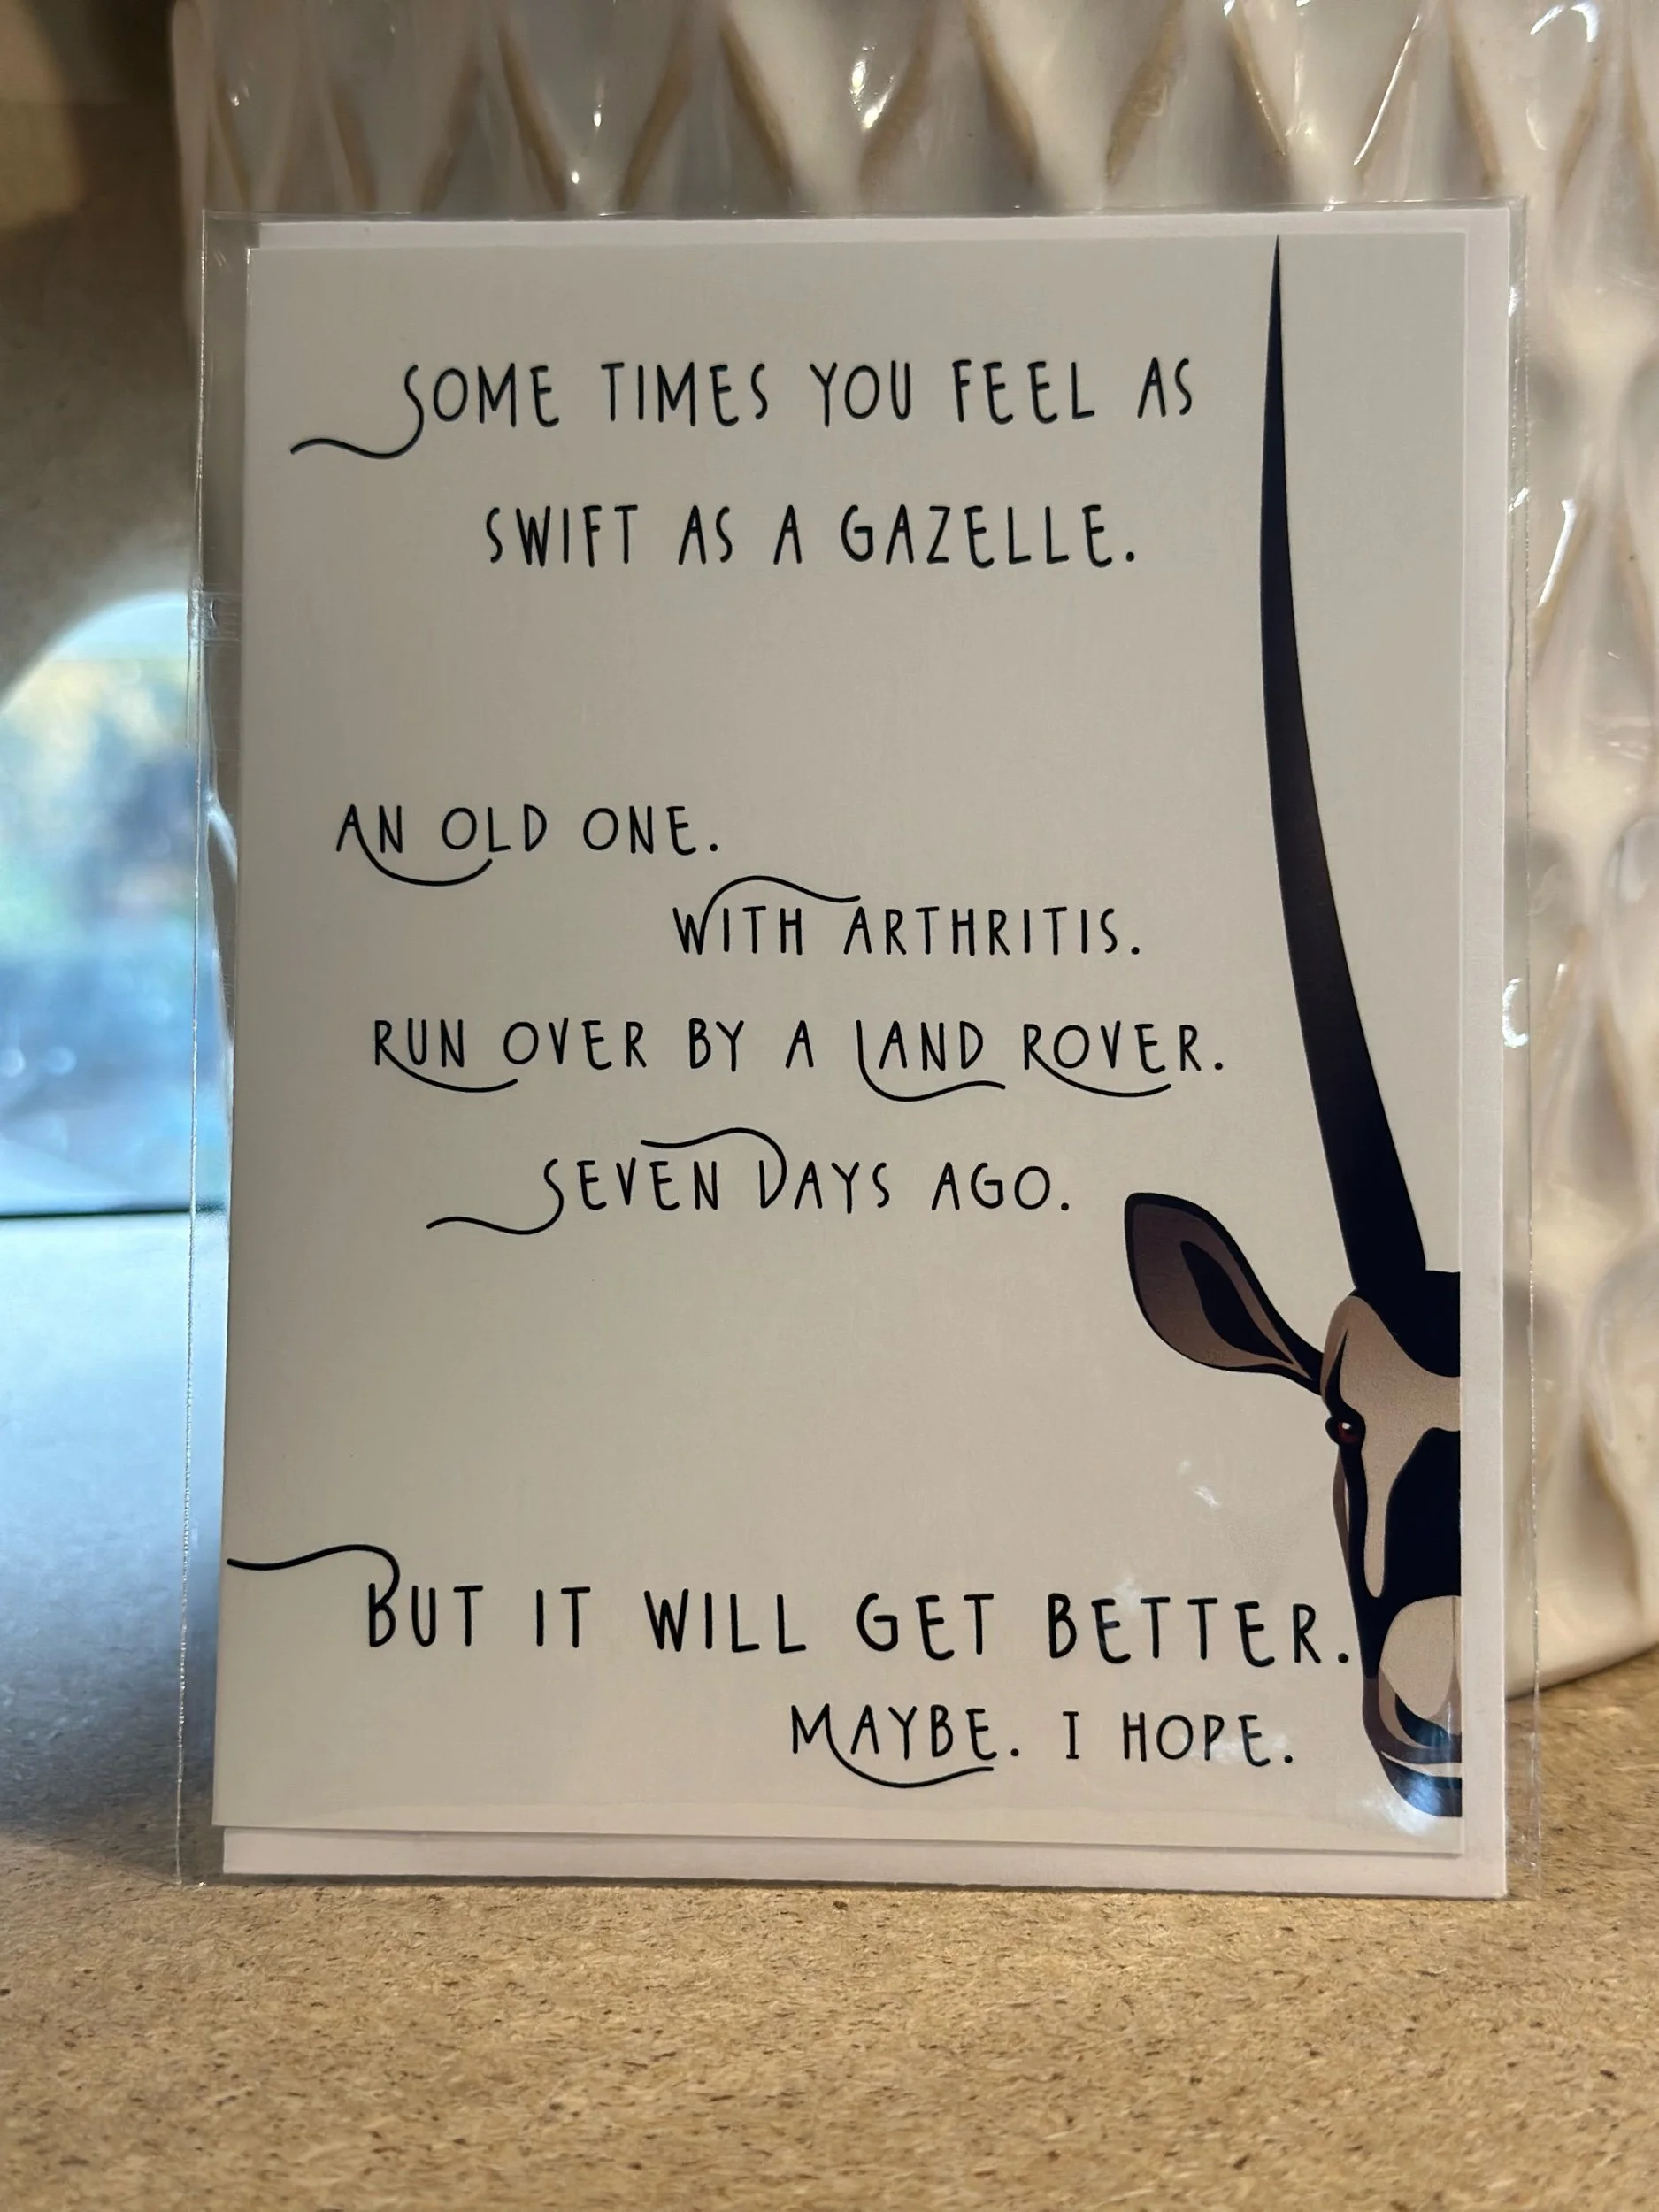 SOME TIMES YOU FEEL AS
SWIFT AS A GAZELLE.
AN OLD ONE.
WITH ARTHRITIS.
RUN OVER BY A LAND ROVER.
SEVEN DAYS AGO.
BUT IT WILL GET BETTER.
MAYBE. I HOPE.